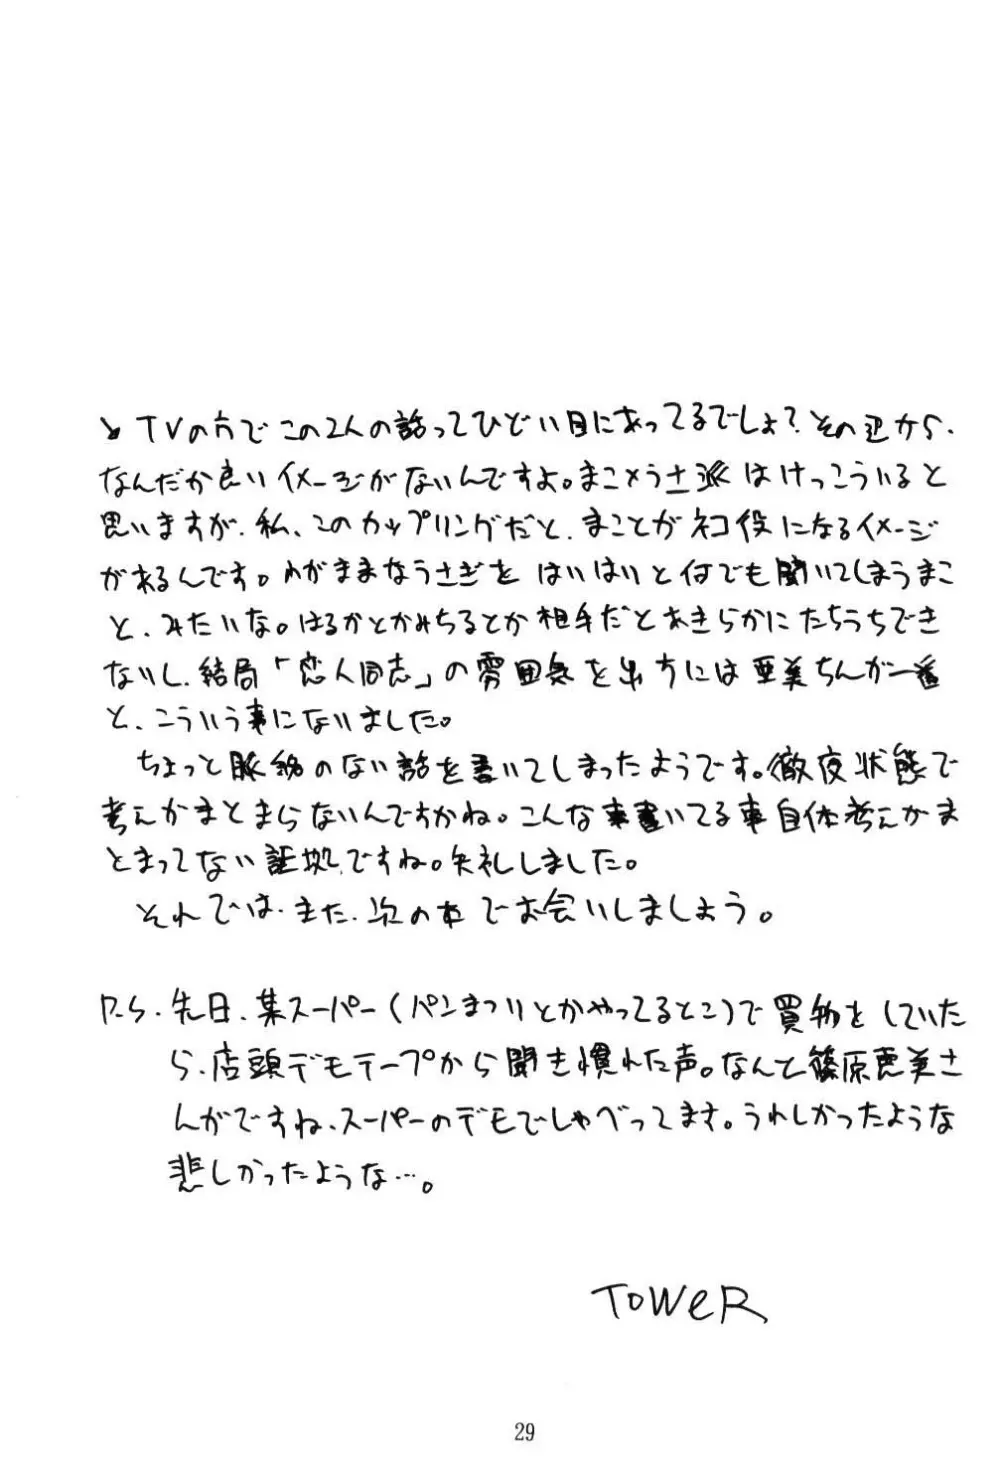 とTVの方でこの2人の話ってひどい目にあってるでしょ?その辺から、
なんだか良いイメージがないんですよ。まこ×うさ派はけっこういると
思いますが、私、このカップリングだと、まことがネコ役になるイメージ
があるんです。わがままなうさぎをはいはいと何でも聞いてしまうまこ
と、みたいな。はるかとかみちるとか相手だとあきらかにたちうちでき
ないし、結局「恋人同志」の雰囲気を出すには亜美ちんが一番
と、こういう事になりました。
ちょっと脈絡のない話を書いてしまったようです。徹夜状態で
考えがまとまらないんですかね。こんな事書いてる事自体考えがま
とまってない証拠ですね。失礼しました。
それでは、また、次の本でお会いしましょう。
P.S. 先日、某スーパー(パンまつりとかやってるとこ)で買物をしていた
ら、店頭デモテープから聞き慣れた声。なんと篠原恵美さ
んがですね、スーパーのデモでしゃべってます。うれしかったような
悲しかったような…。
TOWeR
29